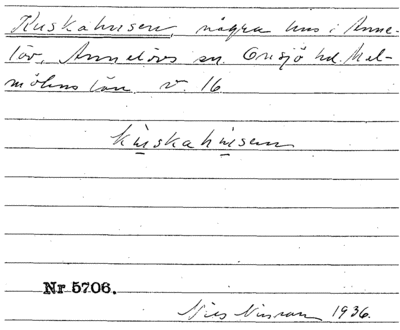 Kuskahusen, några hus i Anne-
löv, Annelövs sn. Onsjö hd. Mal-
möhus län. v. 16
kuskahusen
Nr 5706.
Nils Nilsson 1936.